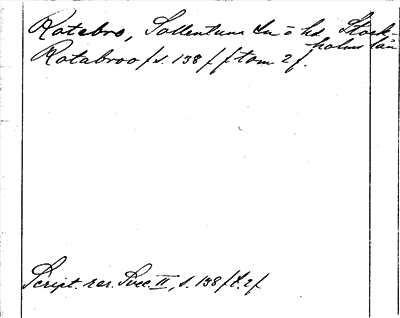 Rotebro, Sollentuna sn o hd, Stock-
holms län
Rotabroo /s. 138 f f t om 2 f.
Script. rer. Svec. II, s. 138 f t. 2 f